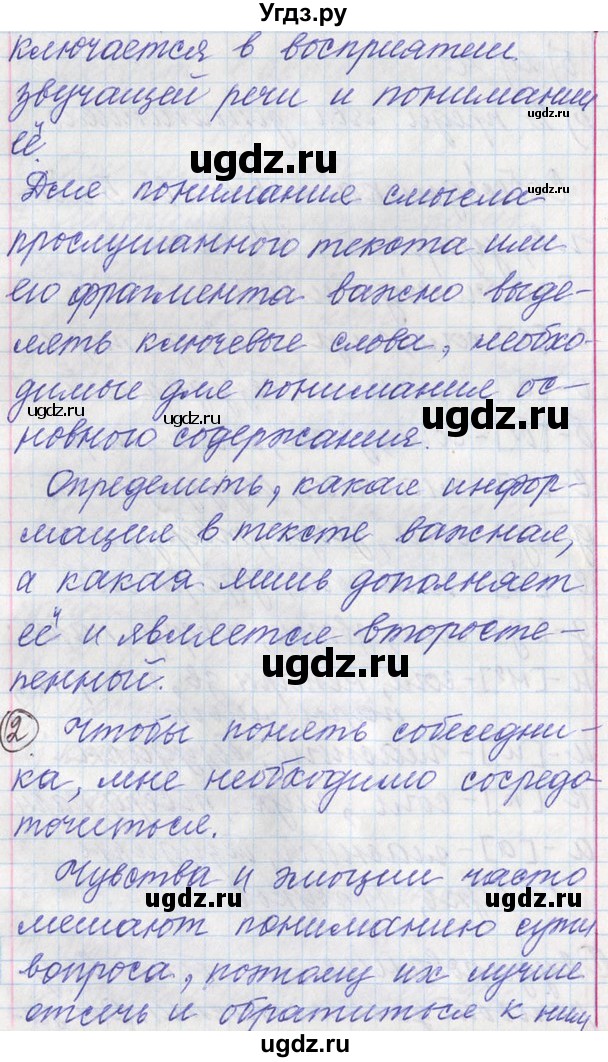 Угдз.ру
ключается в восприятии
звучащей речи и понимании
её.
ugdz.ru
Для понимания смысла
прослушанного текста или
его фрагмента важно выде-
ugdz.ru
лять ключевые слова, необхо-
димые для понимания ос-
ugdz.ru ugdz.ru
новного содержания.
Определить, какая инфор-
мация в тексте важная,
ugdz.ru
а какая лишь дополняет
её и является второсте-
ugdz.ru
пенный.
2. Чтобы понять собеседни-
ка, мне необходимо сосредо
точиться.
ugdz.ru
Чувства и эмоции часто
ugdz.ru
мешают пониманию сути
вопроса, поэтому их лучше
отсечь и обратиться к ним
ugdz.ru